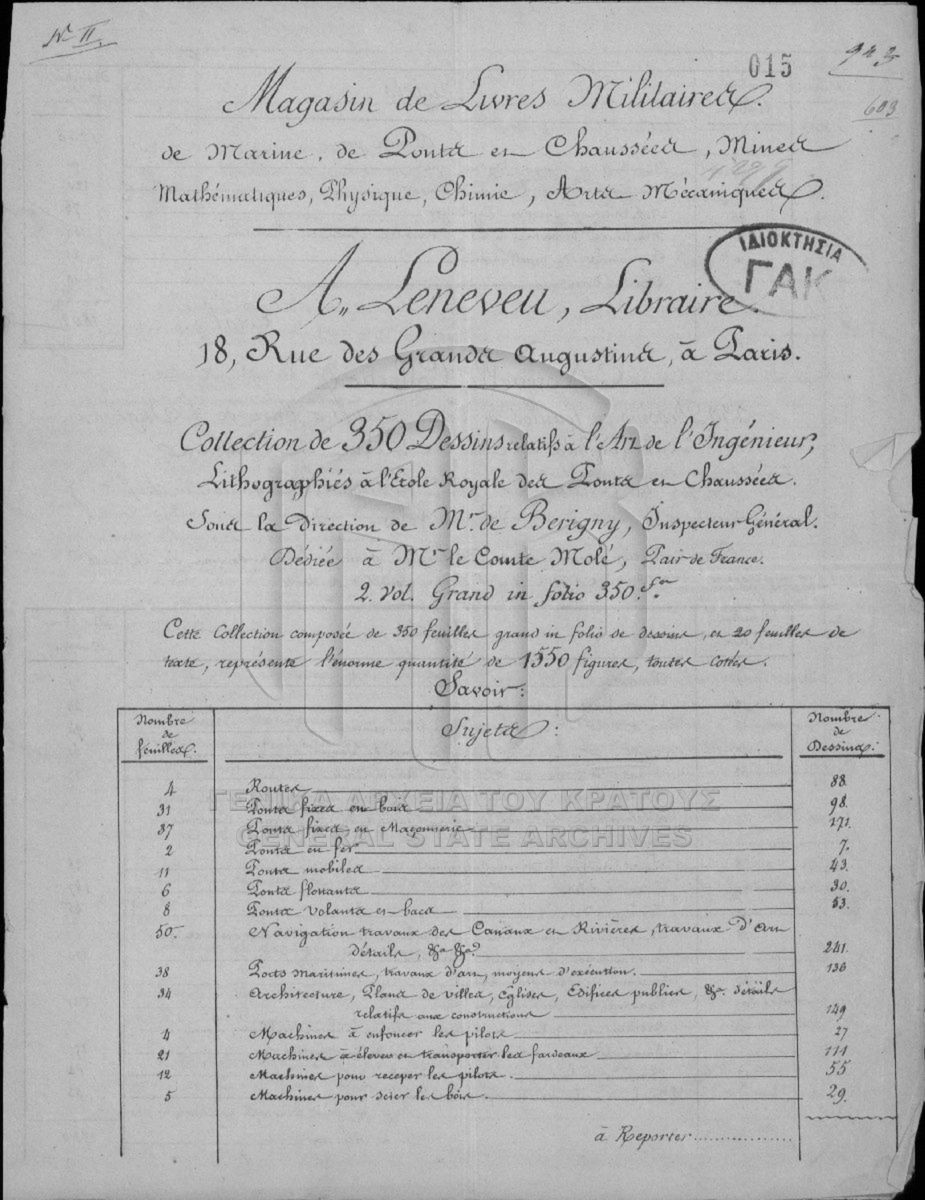 N° II.
015
943
603
Magasin de Livres Militaires.
de Marine, de Ponts et Chaussées, Mines
Mathématiques, Physique, Chimie, Arts Mécaniques.
ΙΔΙΟΚΤΗΣΙΑ
ΓΑΚ
A. Leneveu, Libraire.
18, Rue des Grands Augustins, à Paris.
Collection de 350 Dessins relatifs à l'Art de l'Ingénieur,
Lithographiés à l'Ecole Royale des Ponts et Chaussées.
Sous la Direction de Mr. de Berigny, Inspecteur Général.
Dédiée à Mr le Comte Molé, Pair de France.
2. vol. Grand in folio 350. fr.
Cette Collection composée de 350 feuilles grand in folio de dessins, et 20 feuilles de
texte, représente l'énorme quantité de 1550 figures, toutes cotées.
Savoir:
Nombre de feuilles: Sujets: Nombre de Dessins:
4 Routes 88
31 Ponts fixes en bois 98.
37 Ponts fixes en Maçonnerie 171.
2 Ponts en fer 7.
11 Ponts mobiles 43.
6 Ponts flottants 30.
8 Ponts volants et bacs 53.
50. Navigation travaux des Canaux et Rivières, travaux d'Art
détails, &a &a. 241.
38 Ports maritimes, travaux d'art, moyens d'exécution. 136
34 Architecture, Plans de villes, Eglises, Edifices publics, &a. détails
relatifs aux constructions 149
4 Machines à enfoncer les pilots 27
21 Machines à élever et transporter les fardeaux 111
12 Machines pour receper les pilots. 55
5 Machines pour scier les bois. 29.
à Reporter..............
ΓΕΝΙΚΑ ΑΡΧΕΙΑ ΤΟΥ ΚΡΑΤΟΥΣ
GENERAL STATE ARCHIVES